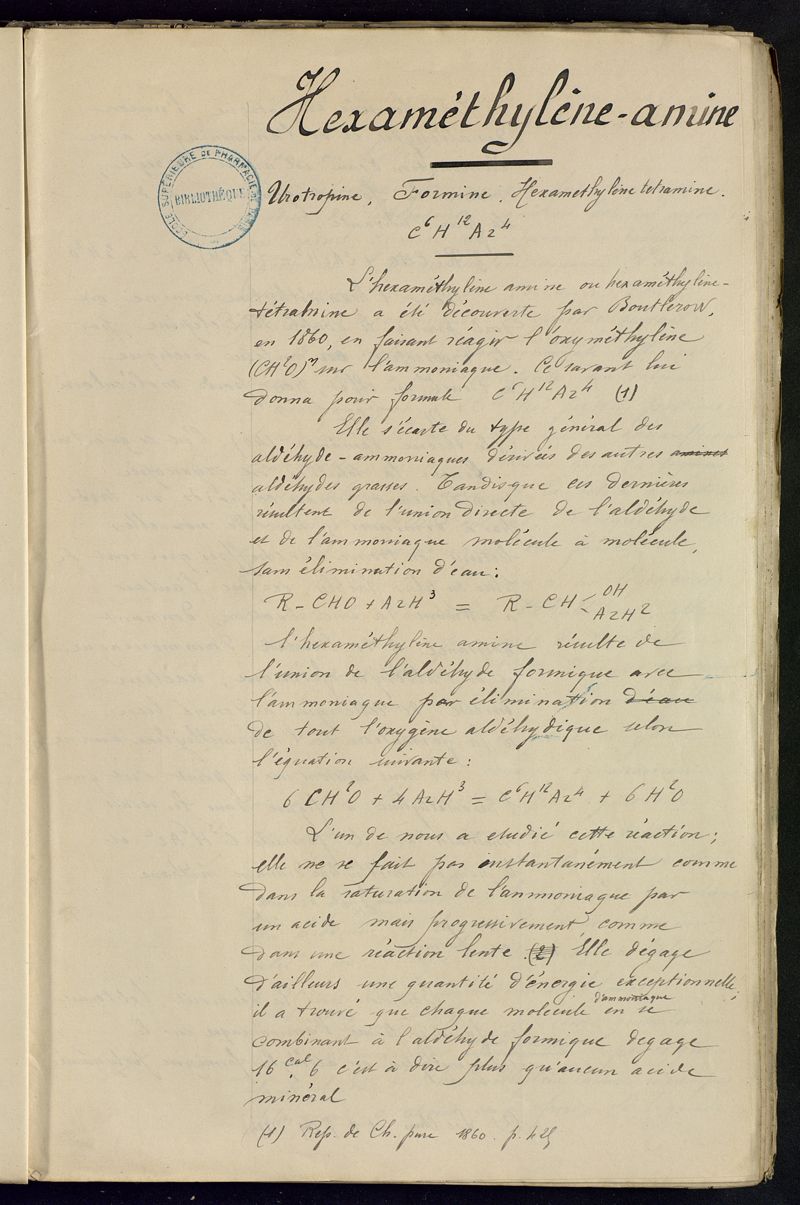 Hexaméthylène-amine
ÉCOLE SUPÉRIEURE DE PHARMACIE
BIBLIOTHÈQUE
Urotropine, Formine, Hexamethylène tetramine.
C⁶H¹²Az⁴
L'hexaméthylène amine ou hexaméthylène-
tétramine a été découverte par Boutlerow,
en 1860, en faisant réagir l'oxyméthylène
(CH²O)ⁿ sur l'ammoniaque. Ce savant lui
donna pour formule C⁶H¹²Az⁴ (1)
Elle s'écarte du type général des
aldéhyde-ammoniaques dérivés des autres amines
aldéhydes grasses. Tandisque ces dernières
résultent de l'union directe de l'aldéhyde
et de l'ammoniaque molécule à molécule,
sans élimination d'eau:
R-CHO + AzH³ = R-CH< OH AzH²
l'hexaméthylène amine résulte de
l'union de l'aldéhyde formique avec
l'ammoniaque par élimination d'eau
de tout l'oxygène aldéhydique selon
l'équation suivante:
6 CH²O + 4 AzH³ = C⁶H¹²Az⁴ + 6 H²O
L'un de nous a etudié cette réaction;
elle ne se fait pas instantanément comme
dans la saturation de l'ammoniaque par
un acide mais progressivement comme
dans une réaction lente (2) Elle dégage
d'ailleurs une quantité d'énergie exceptionnelle;
il a trouvé que chaque molécule d'ammoniaque en se
combinant à l'aldéhyde formique degage
16 cal. 6 c'est à dire plus qu'aucun acide
minéral
(1) Rep. de Ch. pure 1860. p. 42